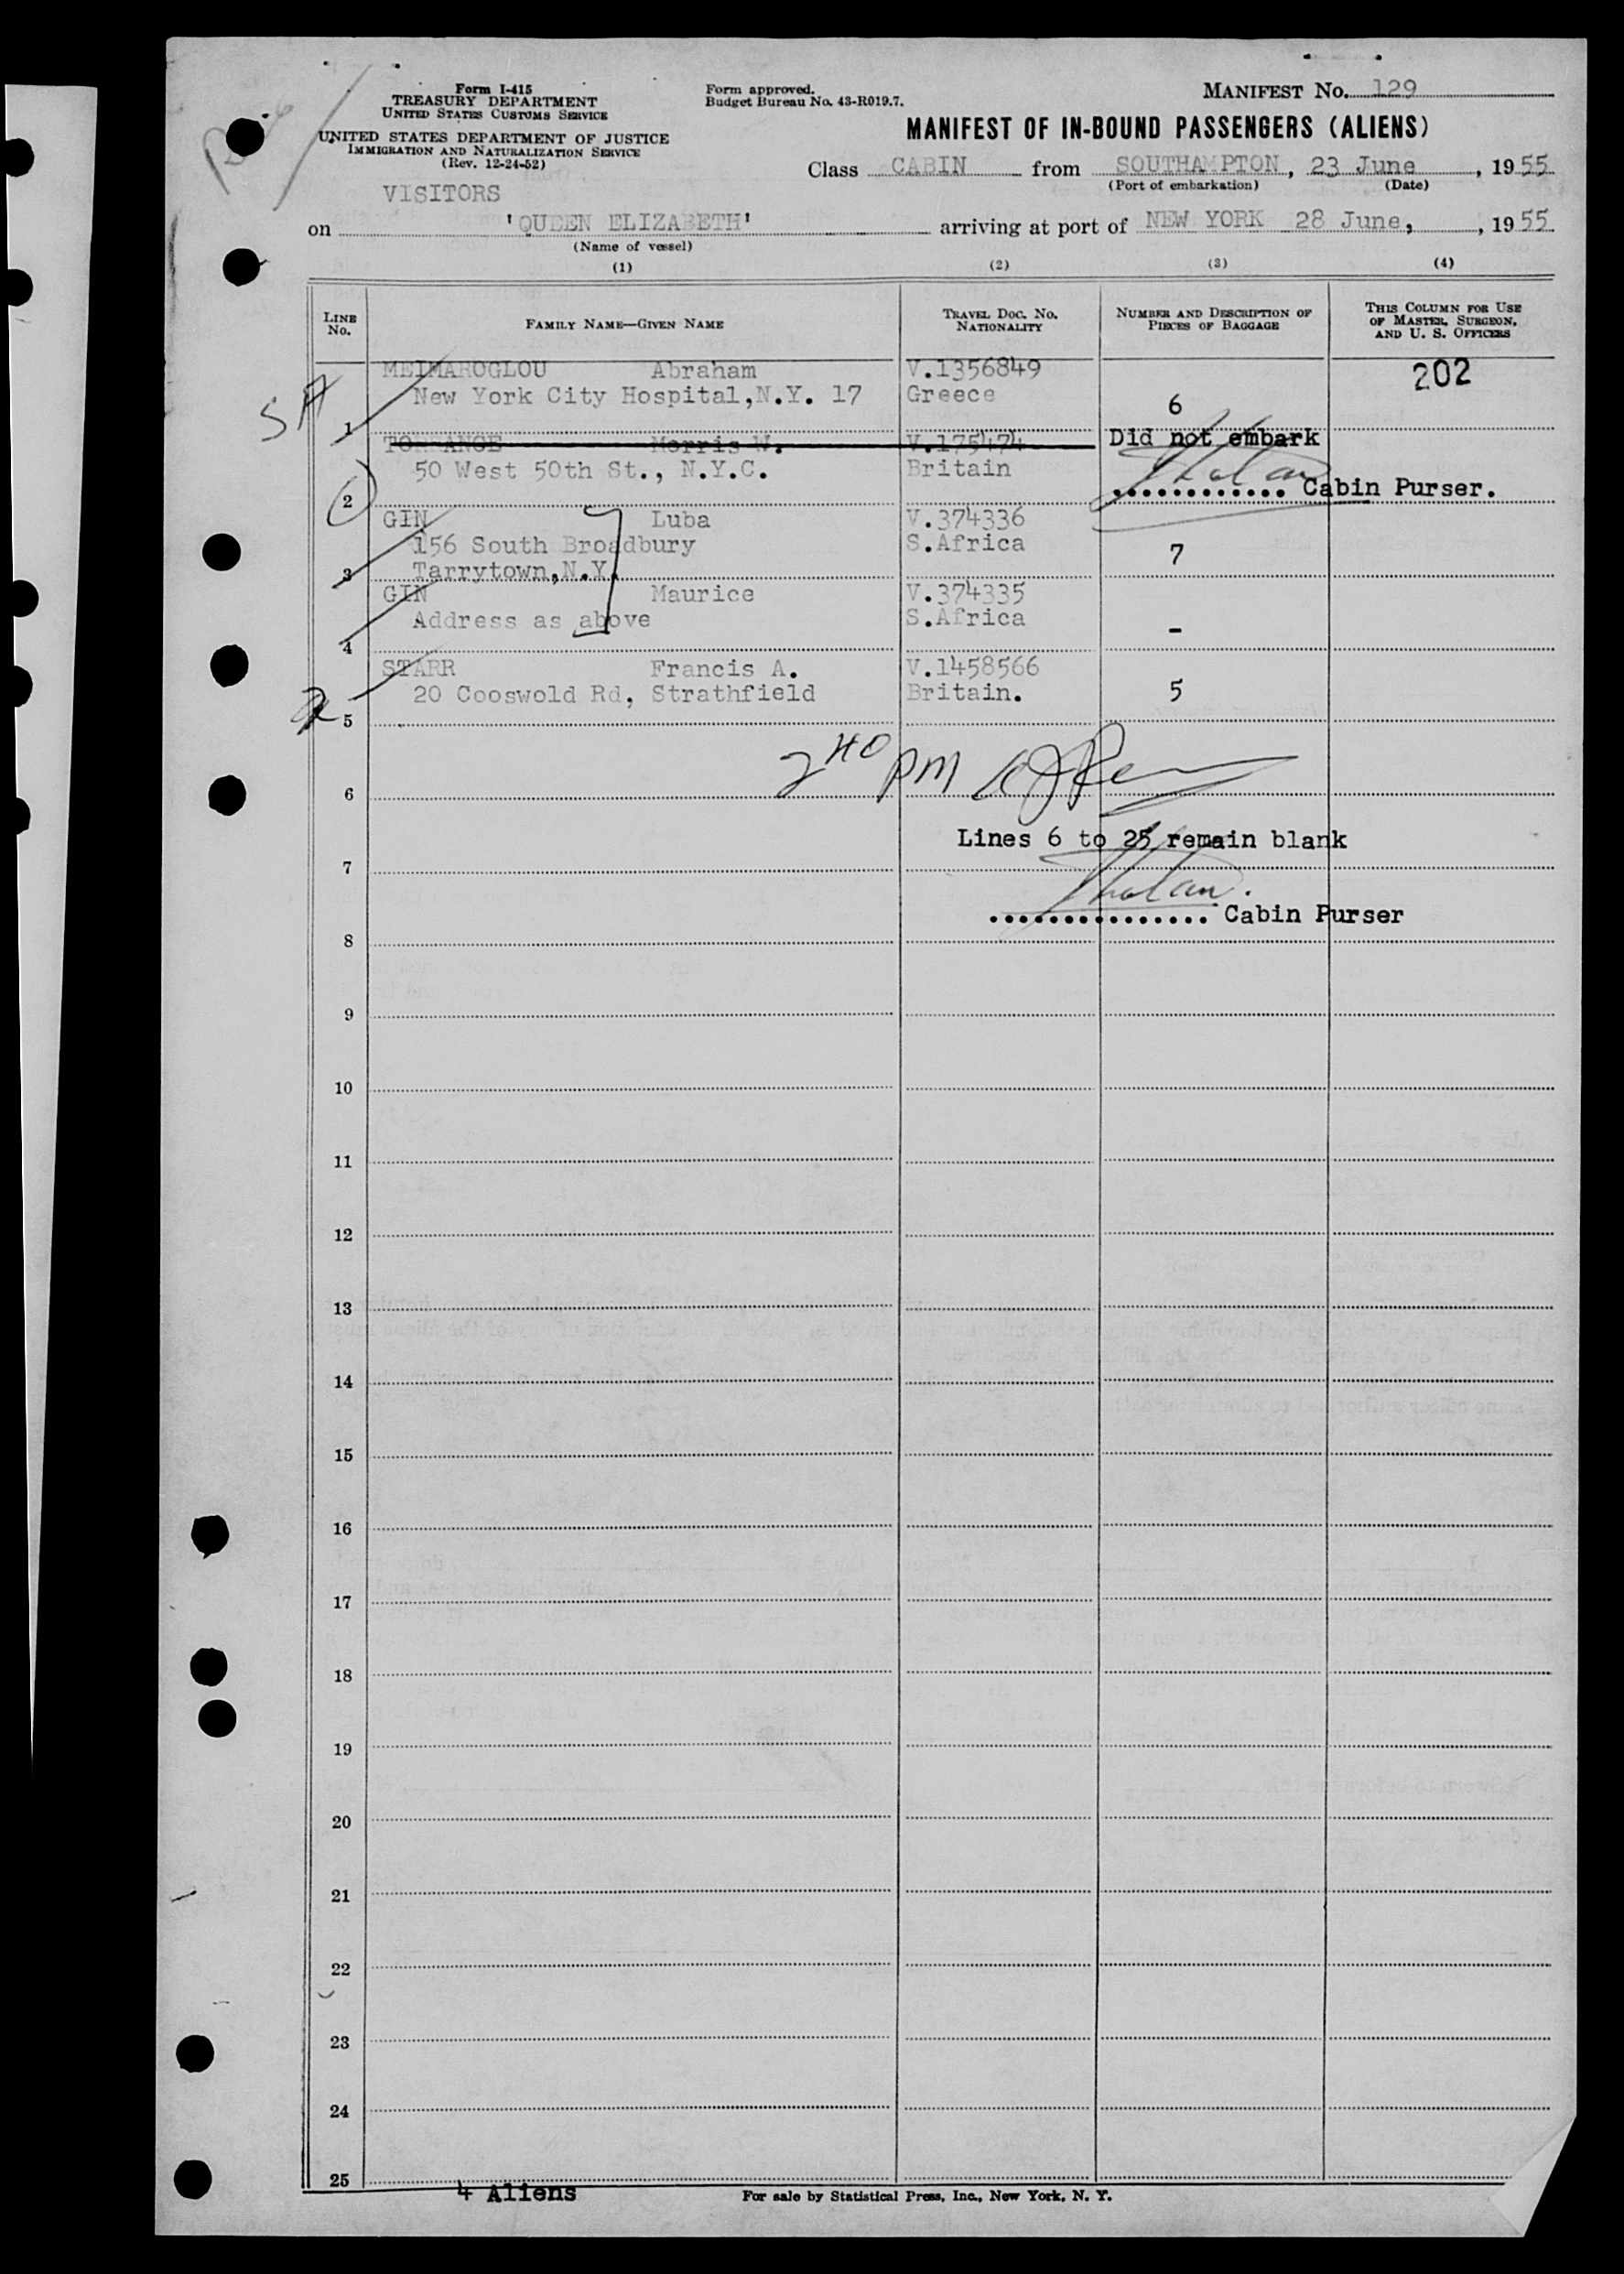 Form I-415
TREASURY DEPARTMENT
UNITED STATES CUSTOMS SERVICE
UNITED STATES DEPARTMENT OF JUSTICE
IMMIGRATION AND NATURALIZATION SERVICE
(Rev. 12-24-52)
Form approved.
Budget Bureau No. 43-R019.7.
MANIFEST NO. 129
MANIFEST OF IN-BOUND PASSENGERS (ALIENS)
Class CABIN from SOUTHAMPTON, 23 June, 1955
(Port of embarkation) (Date)
VISITORS
on 'QUEEN ELIZABETH' arriving at port of NEW YORK 28 June, , 1955
(Name of vessel)
(1) (2) (3) (4)
LINE NO. FAMILY NAME—GIVEN NAME TRAVEL DOC. NO. NATIONALITY NUMBER AND DESCRIPTION OF PIECES OF BAGGAGE THIS COLUMN FOR USE OF MASTER, SURGEON, AND U. S. OFFICERS
MEIMAROGLOU Abraham V.1356849 202
New York City Hospital,N.Y. 17 Greece 6
SA
1
TORRANCE Morris W. V.175474 Did not embark
50 West 50th St., N.Y.C. Britain
2 ............ Cabin Purser.
GIN Luba V.374336
156 South Broadbury S.Africa 7
3 Tarrytown,N.Y.
GIN Maurice V.374335
Address as above S.Africa -
4
STARR Francis A. V.1458566
20 Cooswold Rd, Strathfield Britain. 5
5
2 40 PM
6
Lines 6 to 25 remain blank
7
............... Cabin Purser
8
9
10
11
12
13
14
15
16
17
18
19
20
21
22
23
24
25
4 Aliens
For sale by Statistical Press, Inc., New York, N. Y.